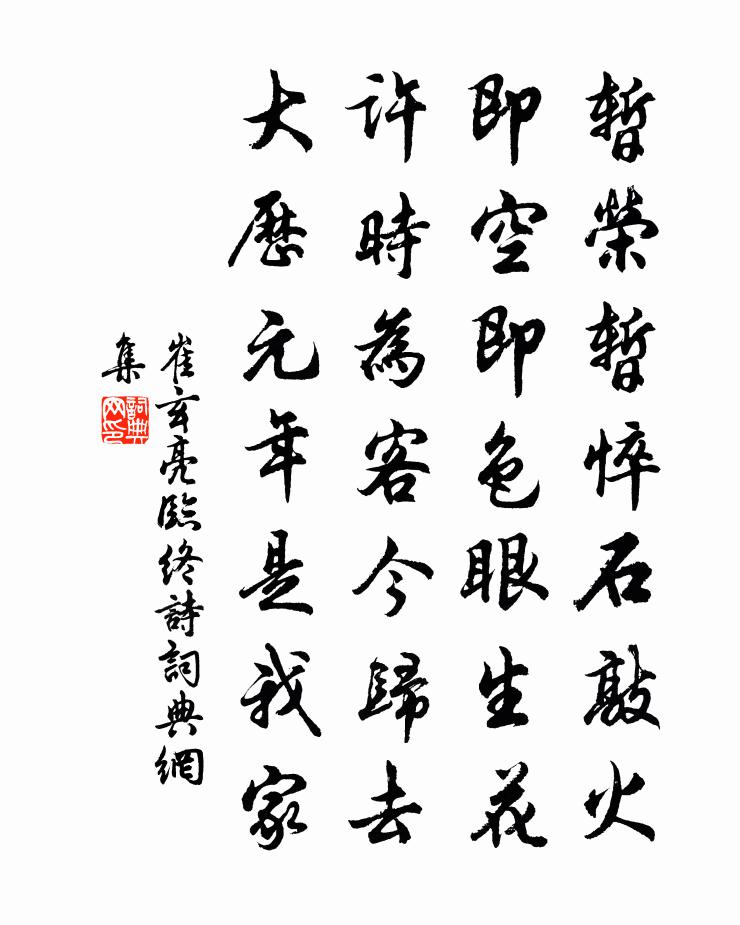 暫榮暫悴石敲火
即空即色眼生花
許時為客今歸去
大歷元年是我家
崔玄亮臨終詩詞典網
集
詞典网印